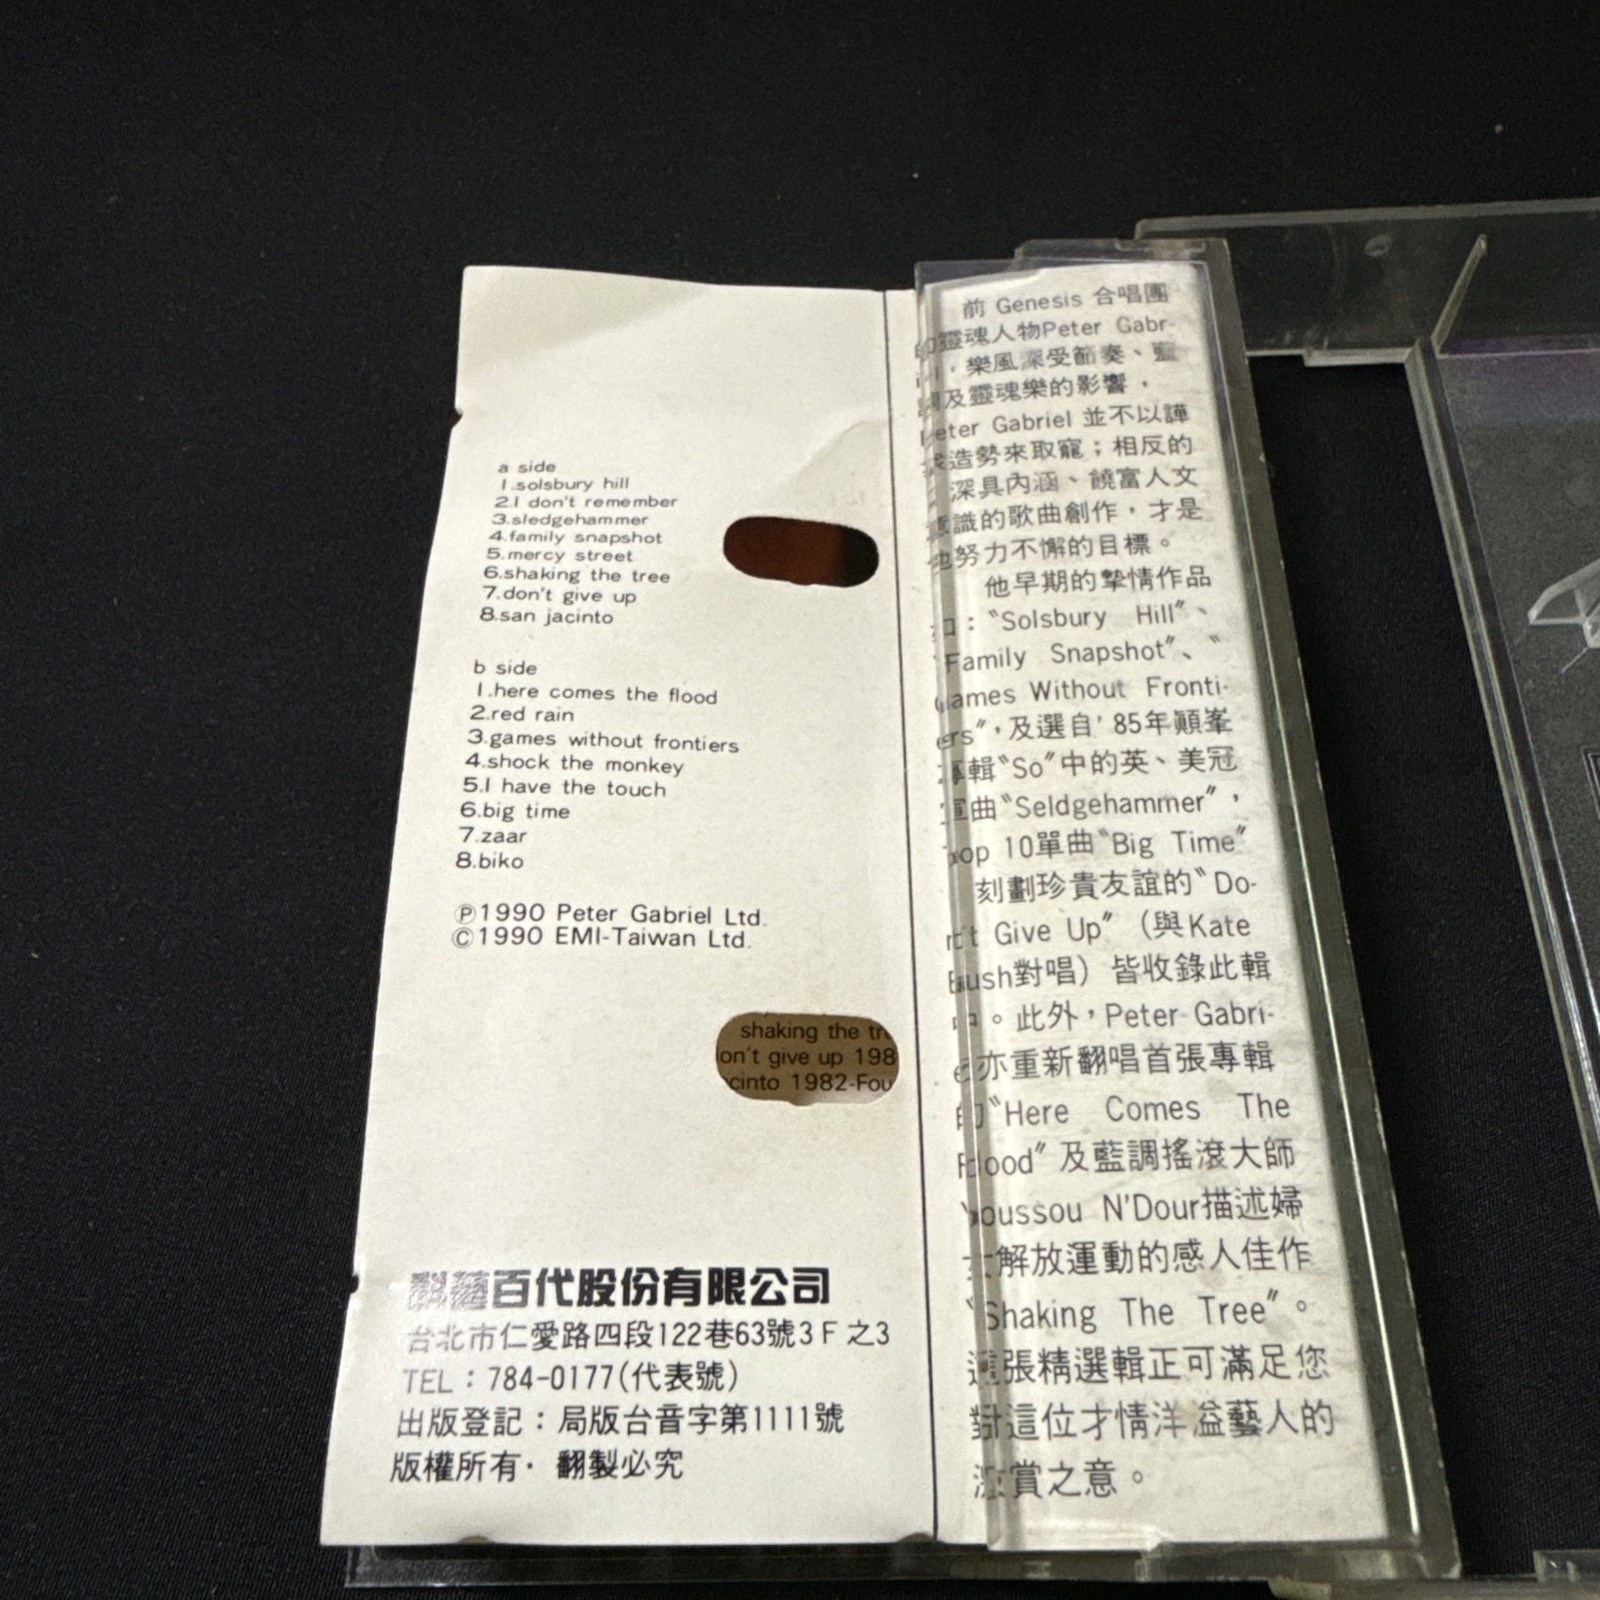 a side
1.solsbury hill
2.I don't remember
3.sledgehammer
4.family snapshot
5.mercy street
6.shaking the tree
7.don't give up
8.san jacinto
b side
1.here comes the flood
2.red rain
3.games without frontiers
4.shock the monkey
5.I have the touch
6.big time
7.zaar
8.biko
Ⓟ1990 Peter Gabriel Ltd.
©1990 EMI-Taiwan Ltd.
shaking the tr
on't give up 198
cinto 1982-Fou
科藝百代股份有限公司
台北市仁愛路四段122巷63號3F之3
TEL：784-0177(代表號)
出版登記：局版台音字第1111號
版權所有·翻製必究
前 Genesis 合唱團
的靈魂人物Peter Gabr-
，樂風深受節奏、藍
調及靈魂樂的影響，
Peter Gabriel 並不以譁
造勢來取寵；相反的
深具內涵、饒富人文
意識的歌曲創作，才是
他努力不懈的目標。
他早期的摯情作品
如：〝Solsbury Hill〞、
〝Family Snapshot〞、〝
Games Without Fronti-
ers〞，及選自'85年顛峯
專輯〝So〞中的英、美冠
軍曲〝Seldgehammer〞，
pop 10單曲〝Big Time〞
刻劃珍貴友誼的〝Do-
n't Give Up〞（與Kate
Bush對唱）皆收錄此輯
中。此外，Peter Gabri-
el亦重新翻唱首張專輯
的〝Here Comes The
Flood〞及藍調搖滾大師
Youssou N'Dour描述婦
女解放運動的感人佳作
〝Shaking The Tree〞。
這張精選輯正可滿足您
對這位才情洋溢藝人的
激賞之意。